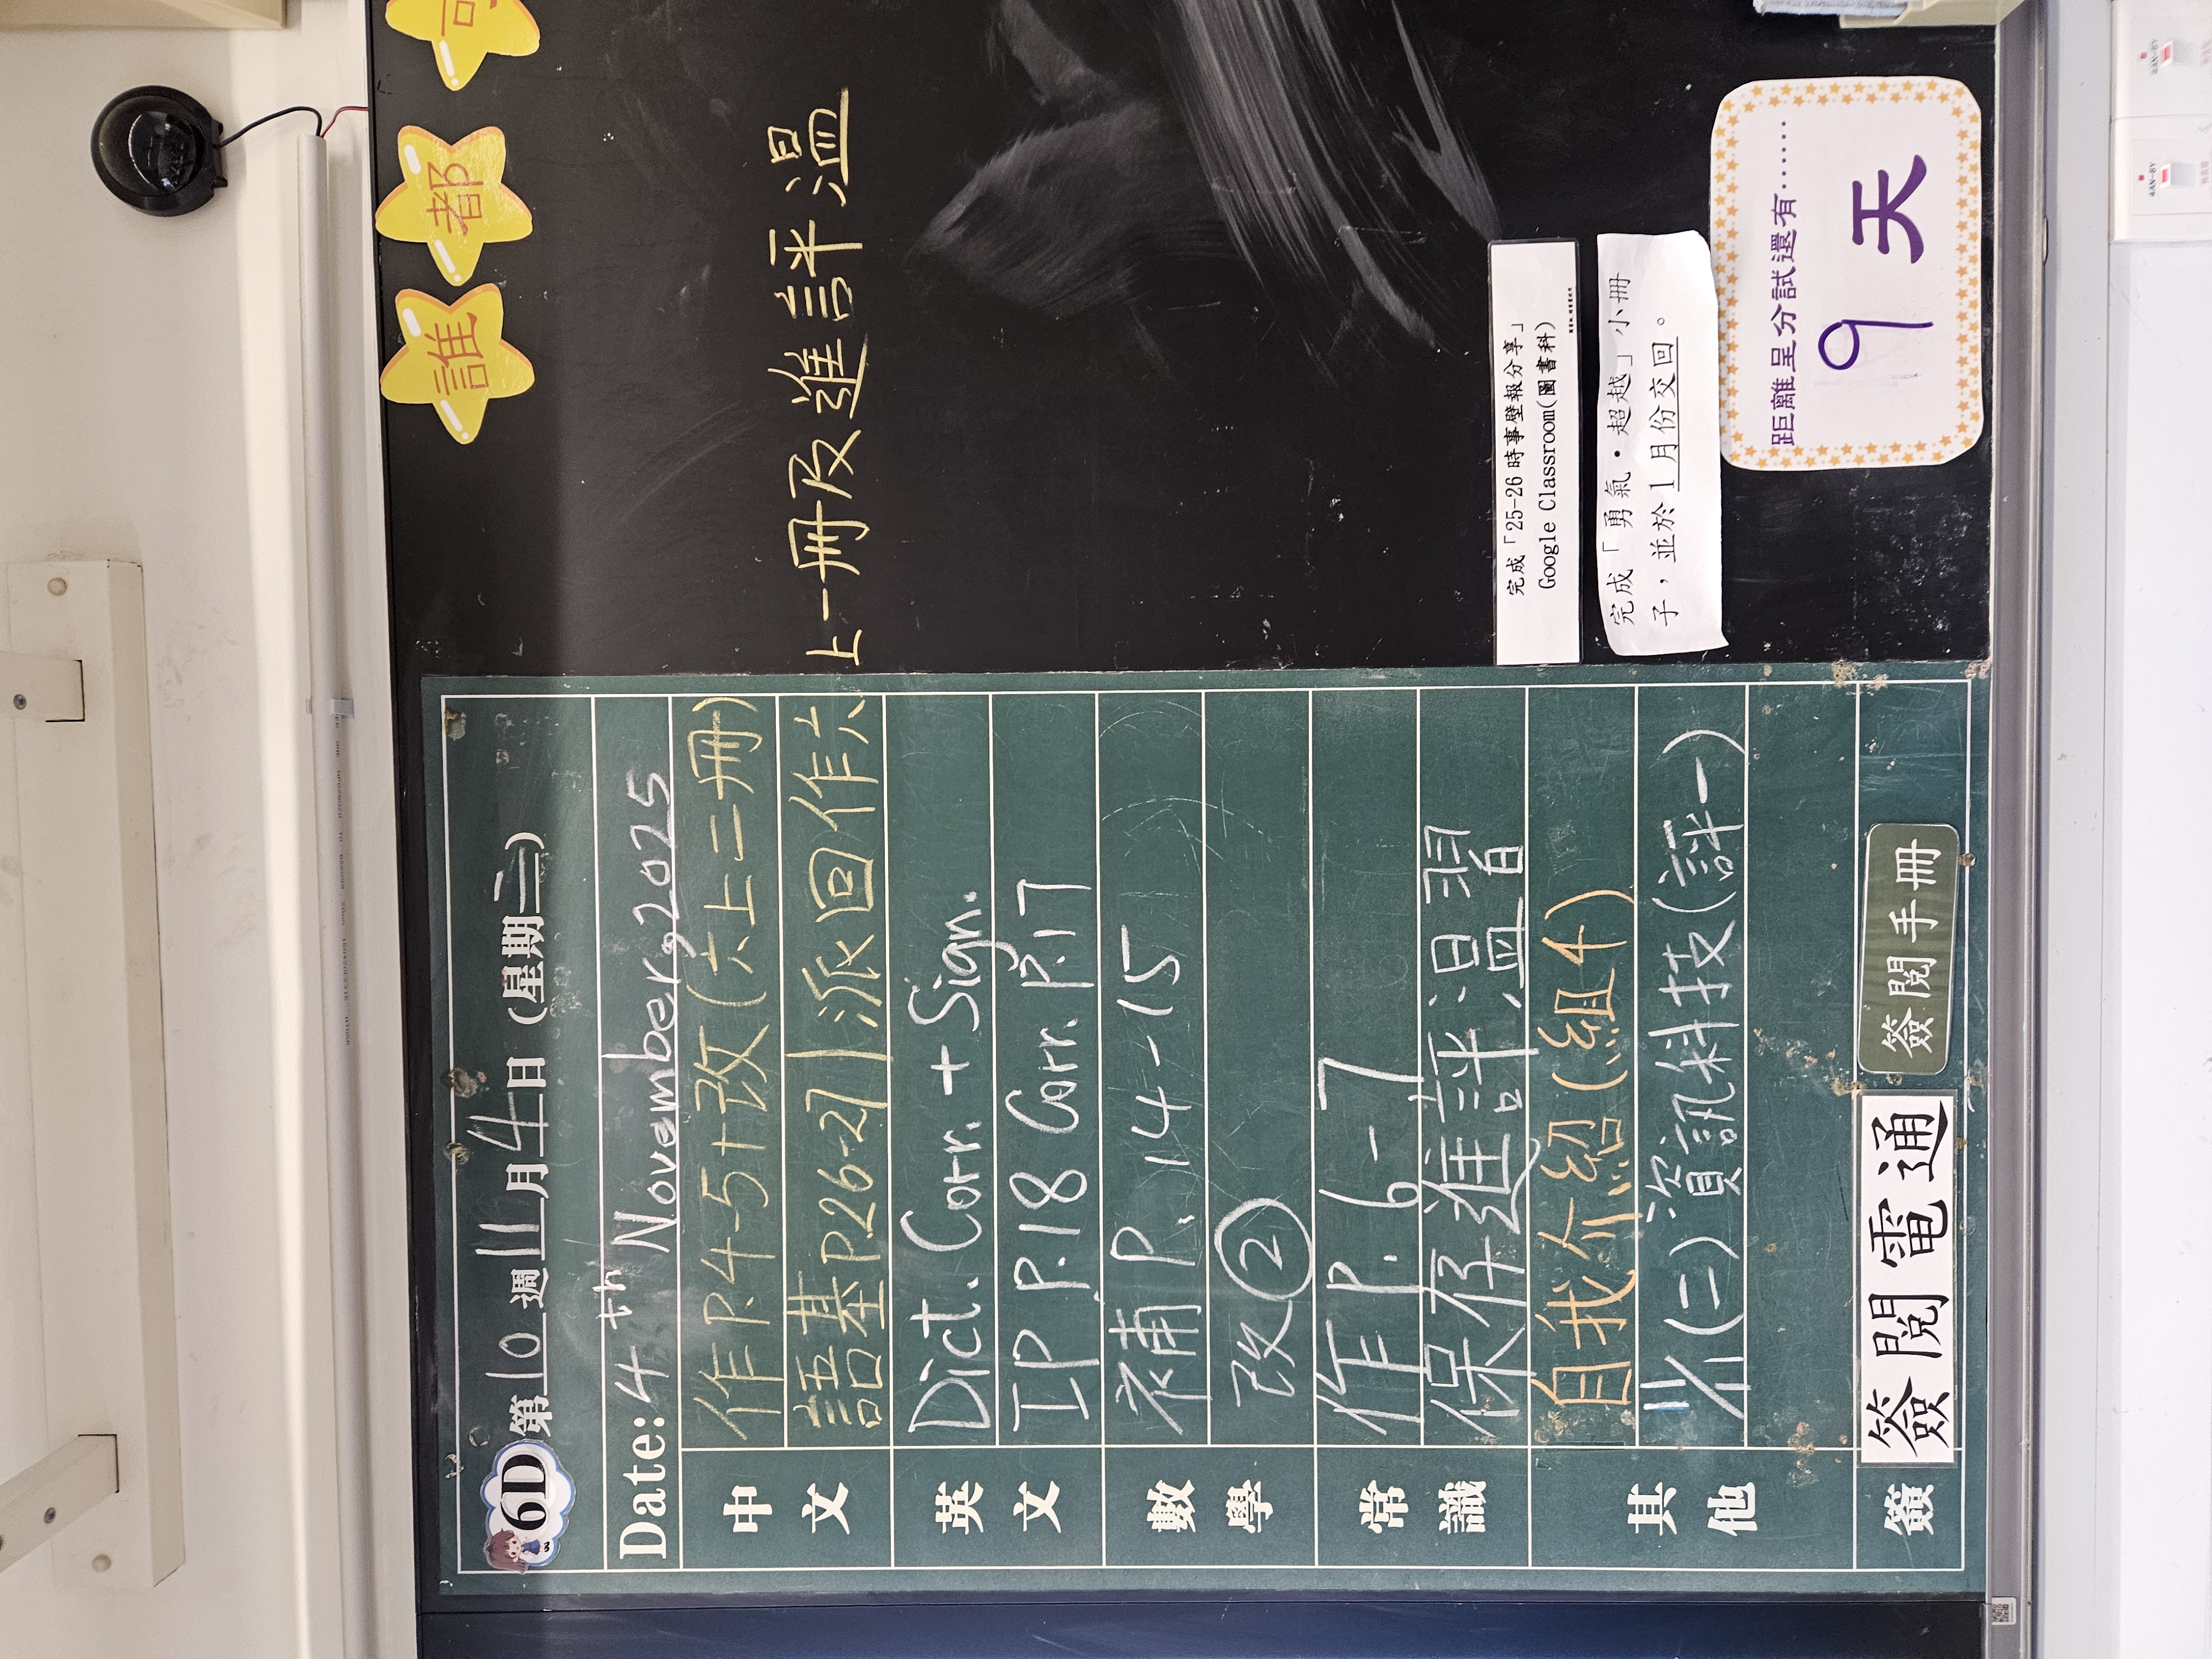 誰 都
6D 第 10 週 11 月 4 日 (星期二)
Date: 4th November, 2025
中文
作P.4-5+改(六上二冊)
語基P.26-27|派回作六上一冊及進評溫
英文
Dict. Corr. + Sign.
IP P.18 Corr. P.17
數學
補 P.14-15
改②
常識
作 P.6-7
保存進評溫習
其他
自我介紹(組4)
11/11(二)資訊科技(評一)
簽
簽閱電通
簽閱手冊
完成「25-26時事壁報分享」
Google Classroom(圖書科)
完成「勇氣・超越」小冊
子，並於1月份交回。
距離呈分試還有......
9 天